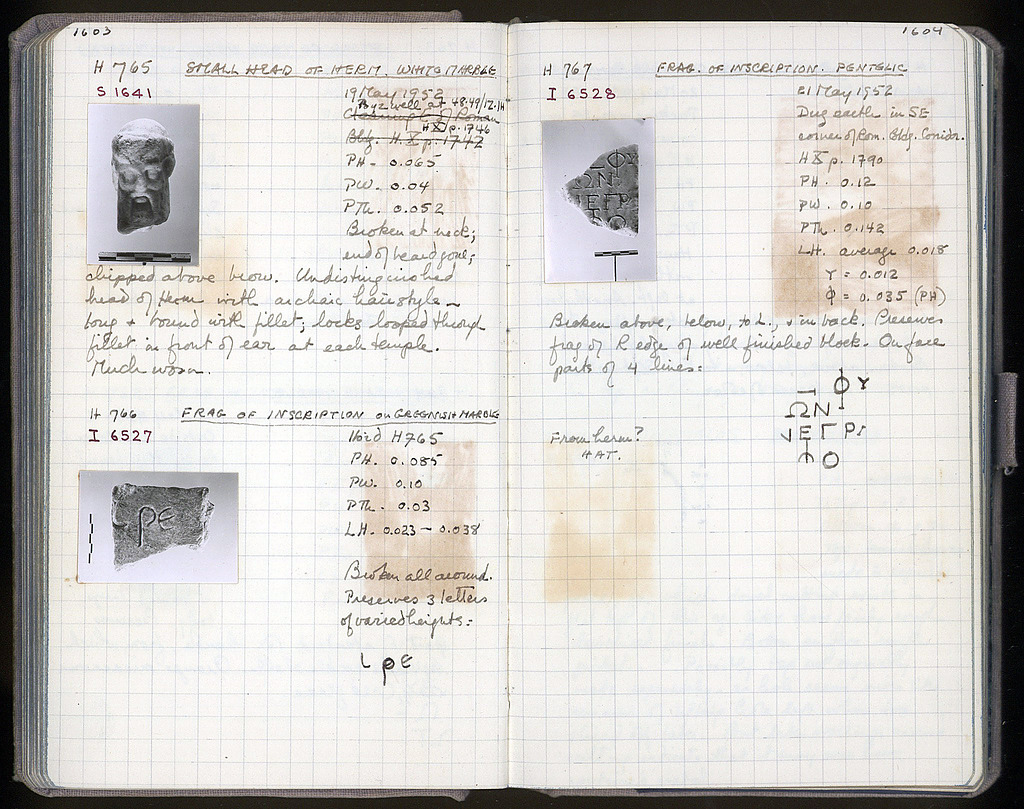 1603
H 765 SMALL HEAD OF HERM. WHITE MARBLE
S 1641
19 May 1952
Byz well at 48.49/12.14
Cleaning of Roman
H X p. 1746
Bldg. H X p. 1742
PH - 0.065
PW. 0.04
PTh. 0.052
Broken at neck;
end of beard gone;
chipped above brow. Undistinguished
head of Herm with archaic hairstyle -
long + bound with fillet; locks looped through
fillet in front of ear at each temple.
Much worn.
H 766 FRAG OF INSCRIPTION on GREENISH MARBLE
I 6527
H765
PH. 0.085
PW. 0.10
PTh. 0.03
LH. 0.023 - 0.038
Broken all around.
Preserves 3 letters
of varied heights:
ρΕ
1604
H 767 FRAG. OF INSCRIPTION. PENTELIC
I 6528
21 May 1952
Dug earth in SE
corner of Rom. Bldg. Corridor.
H X p. 1790
PH. 0.12
PW. 0.10
PTh. 0.142
LH. average 0.018
Υ = 0.012
Φ = 0.035 (PH)
Broken above, below, to L., + in back. Preserves
frag of R edge of well finished block. On face
parts of 4 lines:
ΦΥ
ΩΝ
ΕΓΡ
Ο
From herm?
HAT.